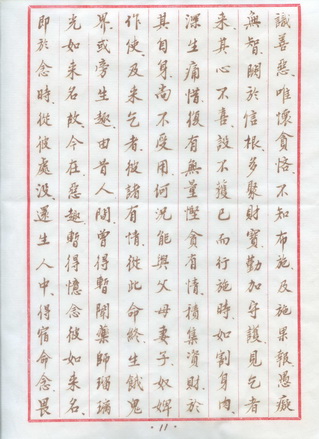 識善惡唯懷貪悋不知布施及施果報愚癡
無智闕於信根多聚財寶勤加守護見乞者
來其心不喜設不獲已而行施時如割身肉
深生痛惜復有無量慳貪有情積集資財於
其自身尚不受用何況能與父母妻子奴婢
作使及來乞者彼諸有情從此命終生餓鬼
界或旁生趣由昔人間曾得暫聞藥師琉璃
光如來名故今在惡趣暫得憶念彼如來名
即於念時從彼處沒還生人中得宿命念畏
·11·